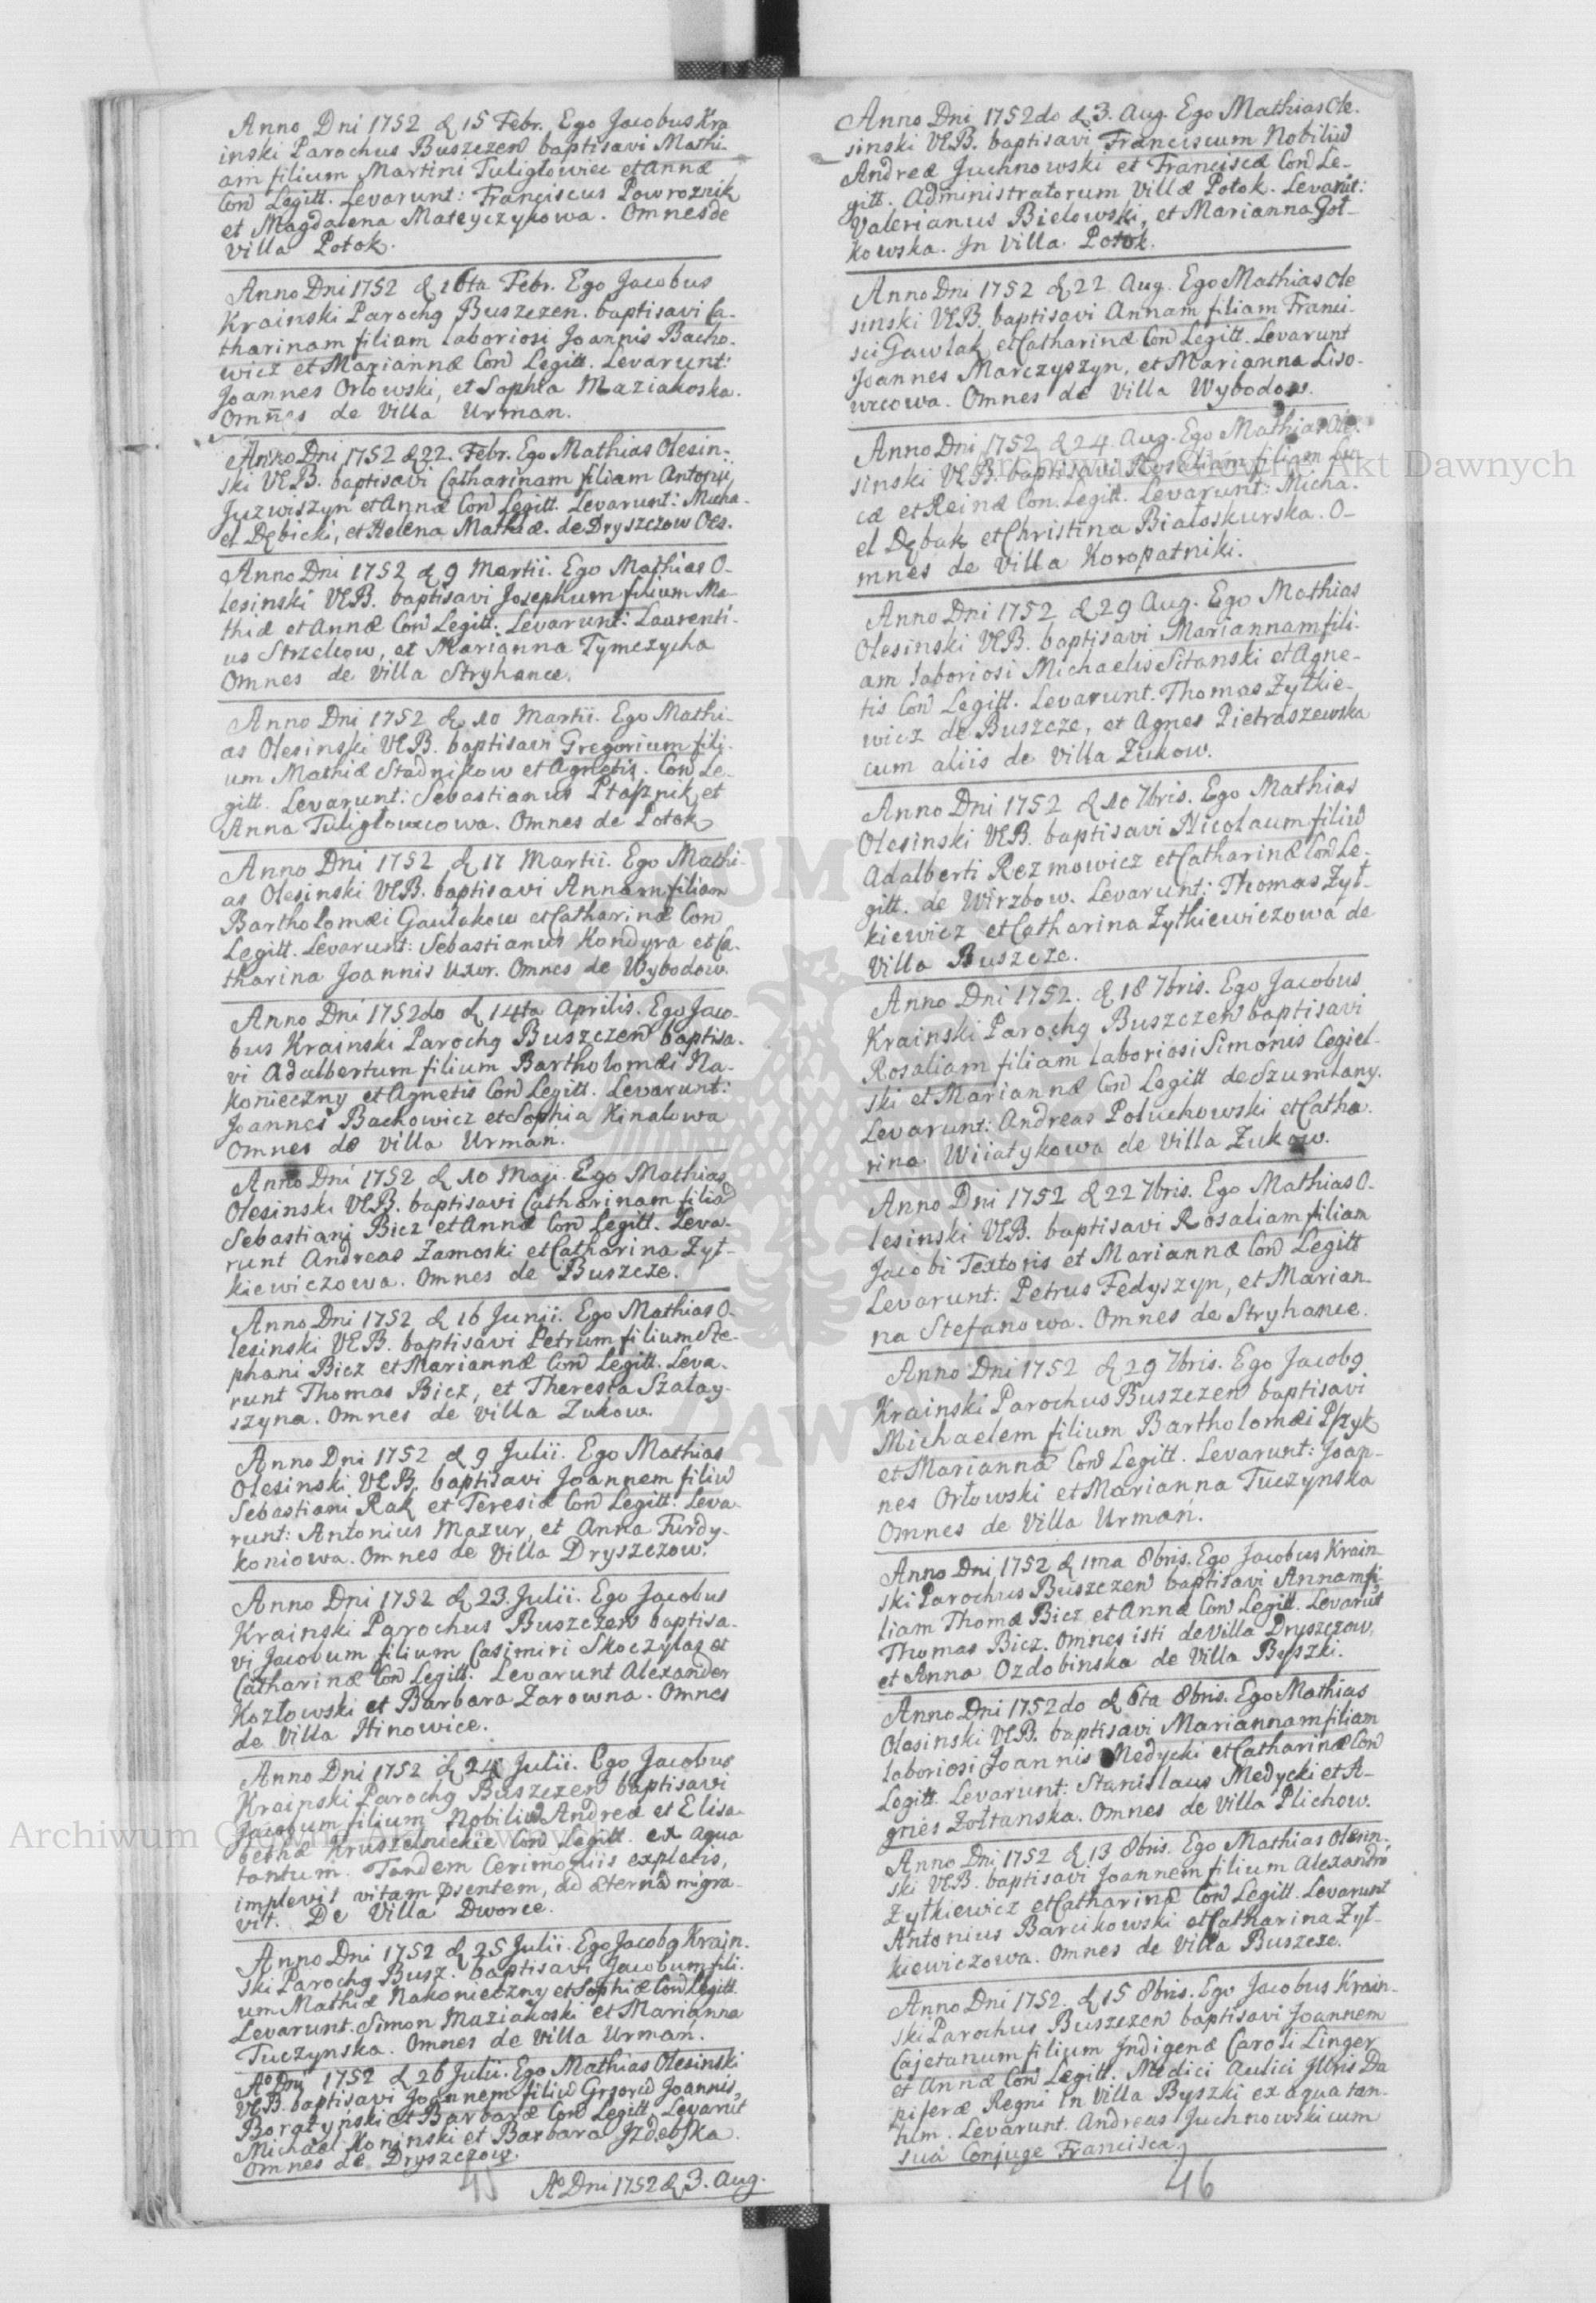 Anno Dni 1752 d 15 Febr. Ego Jacobus Kra
inski Parochus Buszczen baptisavi Mathi-
am filium Martini Tuligłowiec et Annæ
Con Legitt. Levarunt: Franciscus Powroznik
et Magdalena Mateyczykowa. Omnes de
Villa Potok.
Anno Dni 1752 d 16ta Febr. Ego Jacobus
Krainski Parochg Buszczen. baptisavi Ca-
tharinam filiam laboriosi Joannis Bacho-
wicz et Mariannæ Con Legitt. Levarunt:
Joannes Orłowski, et Sophia Maziakoska.
Omnes de Villa Urman.
Anno Dni 1752 d 22. Febr. Ego Mathias Olesin-
ski VEB. baptisavi Catharinam filiam Antonii
Juzwiszyn et Annæ Con Legitt. Levarunt: Micha-
el Dębicki, et Helena Mathiæ. de Dryszczow Oes.
Anno Dni 1752 d 9 Martii. Ego Mathias O-
lesinski VEB. baptisavi Josephum filium Ma-
thiæ et Annæ Con Legitt. Levarunt: Laurenti-
us Strzelcow, et Marianna Tymczycha
Omnes de Villa Stryhance.
Anno Dni 1752 d 10 Martii. Ego Mathi-
as Olesinski VEB. baptisavi Gregorium fili-
um Mathiæ Stadnikow et Agnetis. Con Le-
gitt. Levarunt: Sebastianus Ptasznik et
Anna Tuligłowcowa. Omnes de Potok
Anno Dni 1752 d 17 Martii. Ego Mathi-
as Olesinski VEB. baptisavi Annam filiam
Bartholomæi Gawlakow et Catharinæ Con
Legitt. Levarunt: Sebastianus Kondyra et Ca-
tharina Joannis Uxor. Omnes de Wybodow.
Anno Dni 1752do d 14ta Aprilis. Ego Jaco-
bus Krainski Parochg Buszczen baptisa-
vi Adalbertum filium Bartholomæi Na-
konieczny et Agnetis Con Legitt. Levarunt:
Joannes Bachowicz et Sophia Kinalowa
Omnes de Villa Urman.
Anno Dni 1752 d 10 Maji. Ego Mathias
Olesinski VEB. baptisavi Catharinam filia
Sebastiani Bicz et Annæ Con Legitt. Leva-
runt Andreas Zamoski et Catharina Zyt-
kiewiczowa. Omnes de Buszcze.
Anno Dni 1752 d 16 Junii. Ego Mathias O-
lesinski VEB. baptisavi Petrum filium Ste-
phani Bicz et Mariannæ Con Legitt. Leva-
runt Thomas Bicz, et Theresia Szałay-
szyna. Omnes de Villa Zukow.
Anno Dni 1752 d 9 Julii. Ego Mathias
Olesinski VEB. baptisavi Joannem filiu
Sebastiani Rak et Teresiæ Con Legitt. Leva-
runt: Antonius Mazur, et Anna Furdy-
koniowa. Omnes de Villa Dryszczow.
Anno Dni 1752 d 23. Julii. Ego Jacobus
Krainski Parochus Buszczen baptisa-
vi Jacobum filium Casimiri Skoczylas et
Catharinæ Con Legitt. Levarunt Alexander
Kozłowski et Barbara Zarowna. Omnes
de Villa Hinowice.
Anno Dni 1752 d 24 Julii. Ego Jacobus
Krainski Parochg Buszczen baptisavi
Jacobum filium Nobiliu Andreæ et Elisa-
bethæ Kruszelnickie Con Legitt. ex aqua
tantum. Tandem Cerimoniis expletis,
implevit vitam psentem, ad æterna migra-
vit. De Villa Dworce.
Anno Dni 1752 d 25 Julii. Ego Jacobg Krain-
ski Parochg Busz. baptisavi Jacobum fili-
um Mathiæ Nakonieczny et Sophiæ Con Legitt
Levarunt. Simon Maziakoski et Marianna
Tuczynska. Omnes de Villa Urmań.
Ao Dni 1752 d 26 Julii. Ego Mathias Olesinski
VEB. baptisavi Joannem filiu Joannis
Boratyński et Barbaræ Con Legitt. Levarut
Michael Koninski et Barbara Jzdebska.
Omnes de Dryszczow.
45
Ao Dni 1752 d 3. Aug.
Anno Dni 1752do d 3. Aug. Ego Mathias Ole-
sinski VEB. baptisavi Franciscum Nobiliu
Andreæ Juchnowski et Franciscæ Con Le-
gitt. Administratorum Villæ Potok. Levarut:
Valerianus Bielowski, et Marianna Got-
kowska. In Villa Potok.
Anno Dni 1752 d 22 Aug. Ego Mathias Ole
sinski VEB. baptisavi Annam filiam Franci-
sci Gawlak et Catharinæ Con Legitt. Levarunt
Joannes Marczyszyn, et Marianna Liso-
wcowa. Omnes de Villa Wybodow.
Anno Dni 1752 d 24 Aug. Ego Mathias Ole-
sinski VEB. baptisavi Rosaliam filiam Lu-
cæ et Reinæ Con. Legitt. Levarunt: Micha-
el Dębak et Christina Białoskurska. O-
mnes de Villa Koropatniki.
Anno Dni 1752 d 29 Aug. Ego Mathias
Olesinski VEB. baptisavi Mariannam fili-
am laboriosi Michaelis Sitanski et Agne-
tis Con Legitt. Levarunt. Thomas Zytkie-
wicz de Buszcze, et Agnes Pietraszewska
cum aliis de Villa Zukow.
Anno Dni 1752 d 10 7bris. Ego Mathias
Olesinski VEB. baptisavi Nicolaum filiu
Adalberti Rezmowicz et Catharinæ Con Le-
gitt. de Wirzbow. Levarunt: Thomas Zyt-
kiewicz et Catharina Zytkiewiczowa de
Villa Buszcze.
Anno Dni 1752. d 18 7bris. Ego Jacobus
Krainski Parochg Buszczen baptisavi
Rosaliam filiam laboriosi Simonis Cegiel-
ski et Mariannæ Con Legitt de Szumlany.
Levarunt: Andreas Poluchowski et Catha-
rina Wiiatykowa de Villa Zukow.
Anno Dni 1752 d 22 7bris. Ego Mathias O-
lesinski VEB. baptisavi Rosaliam filiam
Jacobi Textoris et Mariannæ Con Legitt
Levarunt: Petrus Fedyszyn, et Marian-
na Stefanowa. Omnes de Stryhance.
Anno Dni 1752 d 29 7bris. Ego Jacobg
Krainski Parochus Buszczen baptisavi
Michaelem filium Bartholomæi Pszyk
et Mariannæ Con Legitt. Levarunt: Joan-
nes Orłowski et Marianna Tuczynska
Omnes de Villa Urmań.
Anno Dni 1752 d 1ma 8bris. Ego Jacobus Krain-
ski Parochus Buszczen baptisavi Annam fi-
liam Thomæ Bicz et Annæ Con Legitt. Levarut
Thomas Bicz. Omnes isti de Villa Dryszczow,
et Anna Ozdobinska de Villa Byszki.
Anno Dni 1752do d 6ta 8bris. Ego Mathias
Olesinski VEB. baptisavi Mariannam filiam
laboriosi Joannis Medycki et Catharinæ Con
Legitt. Levarunt: Stanislaus Medycki et A-
gnes Zołtanska. Omnes de Villa Plichow.
Anno Dni 1752 d 13 8bris. Ego Mathias Olesin-
ski VEB. baptisavi Joannem filium Alexandri
Zytkiewicz et Catharinæ Con Legitt. Levarunt
Antonius Barcikowski et Catharina Zyt-
kiewiczowa. Omnes de Villa Buszcze.
Anno Dni 1752. d 15 8bris. Ego Jacobus Krain-
ski Parochus Buszczen baptisavi Joannem
Cajetanum filium Indigenæ Caroli Linger
et Annæ Con Legitt. Medici Aulici Da
piferæ Regni in Villa Byszki ex aqua tan-
tum. Levarunt. Andreas Juchnowski cum
sua Conjuge Francisca.
46
Archiwum Główne Akt Dawnych
Archiwum Główne Akt Dawnych